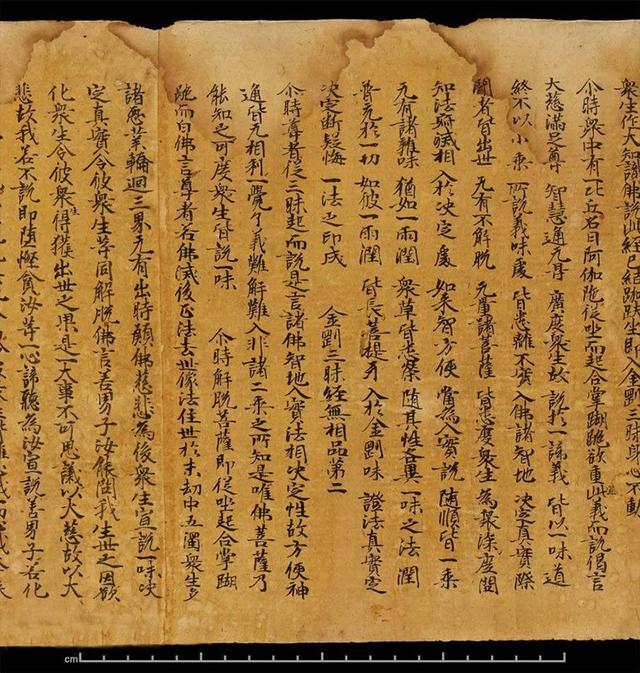 衆生作大知識佛說此經已結跏趺坐即入金剛三昧身心不動
尒時衆中有一比丘名曰阿伽陀從坐而起合掌蹰跪欲重此義而說偈言
大慈滿足尊 智慧通无㝵 廣度衆生故 說於一諦義 皆以一味道
終不以小乘 所說義味處 皆悉離不實 入佛諸智地 決定真實際
聞者皆出世 无有不解脫 无量諸菩薩 皆悉度衆生 為衆深廣聞
知法寂滅相 入於決定處 如來智方便 當為入實說 随順皆一乘
无有諸雜味 猶如一雨潤 衆草皆悉榮 随其性各異 一味之法潤
普充於一切 如彼一雨潤 皆長菩提牙 入於金剛味 證法真實定
決定斷疑悔 一法之印成 金剛三昧經無相品第二
尒時尊者從三昧起而說是言諸佛智地入實法相決定性故方便神
通皆无相利一覺了義難解難入非諸二乘之所知是唯佛菩薩乃
能知之可度衆生皆說一味 尒時解脫菩薩即從坐起合掌蹰
跪而白佛言尊者若佛滅後正法去世像法住世於末劫中五濁衆生多
諸惡業輪迴三界无有出時願佛慈悲為後衆生宣說一味決
定真實令彼衆生等同解脫佛言善男子汝能問我出世之因欲
化衆生令彼衆生得獲出世之果是一大事不可思議以大慈故以大
悲故我若不說即堕慳貪汝等一心諦聽為汝宣說善男子若化